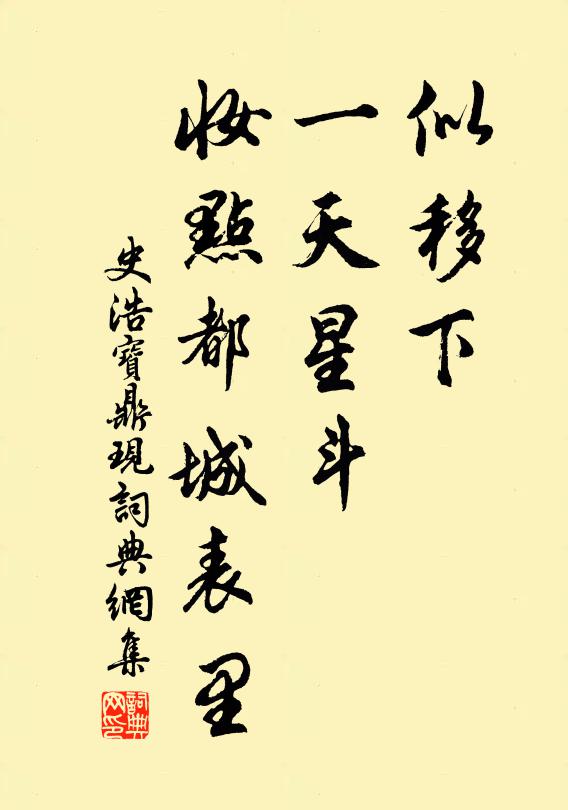 似移下
一天星斗
妝點都城表里
史浩寶鼎現詞典網集
詞典网印